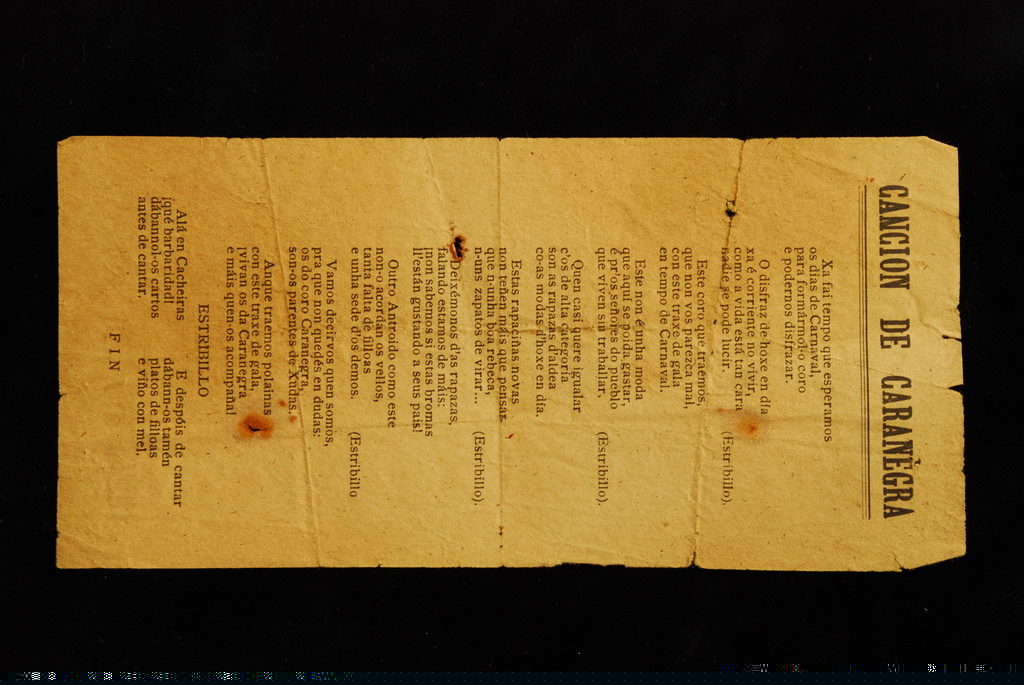 CANCION DE CARANEGRA
Xa fai tempo que esperamos
os días de Carnaval,
para formármol-o coro
e podernos disfrazar.
O disfraz de hoxe en día
xa é corriente no vivir,
como a vida está tan cara
nadie se pode lucir.
(Estribillo).
Este coro que traemos,
que non vos parezca mal,
con este traxe de gala
en tempo de Carnaval.
Este non é unha moda
que aquí se poida gastar,
é pr'os señores do pueblo
que viven sin traballar.
(Estribillo).
Quen casi quere igualar
c'os de alta categoría
son as rapazas d'aldea
co-as modas d'hoxe en día.
Estas rapaciñas novas
non teñen máis que pensar
que n-unha boa rebeca,
n-uns zapatos de virar...
(Estribillo).
Deixémonos d'as rapazas,
falando estamos de máis;
¡non sabemos si estas bromas
ll'están gustando a seus pais!
Outro Antroido como este
non-o acordan os vellos,
tanta falta de filloas
e unha sede d'os demos.
(Estribillo
Vamos decirvos quen somos,
pra que non quedés en dudas:
os do coro Caranegra,
son-os parentes de Xudas.
Anque traemos polainas
con este traxe de gala,
¡vivan os da Caranegra
e máis quen-os acompaña!
ESTRIBILLO
Alá en Cacheiras
¡qué barbaridad!
dábannol-os cartos
antes de cantar.
E despóis de cantar
dábann-os tamén
platos de filloas
e viño con mel.
FIN